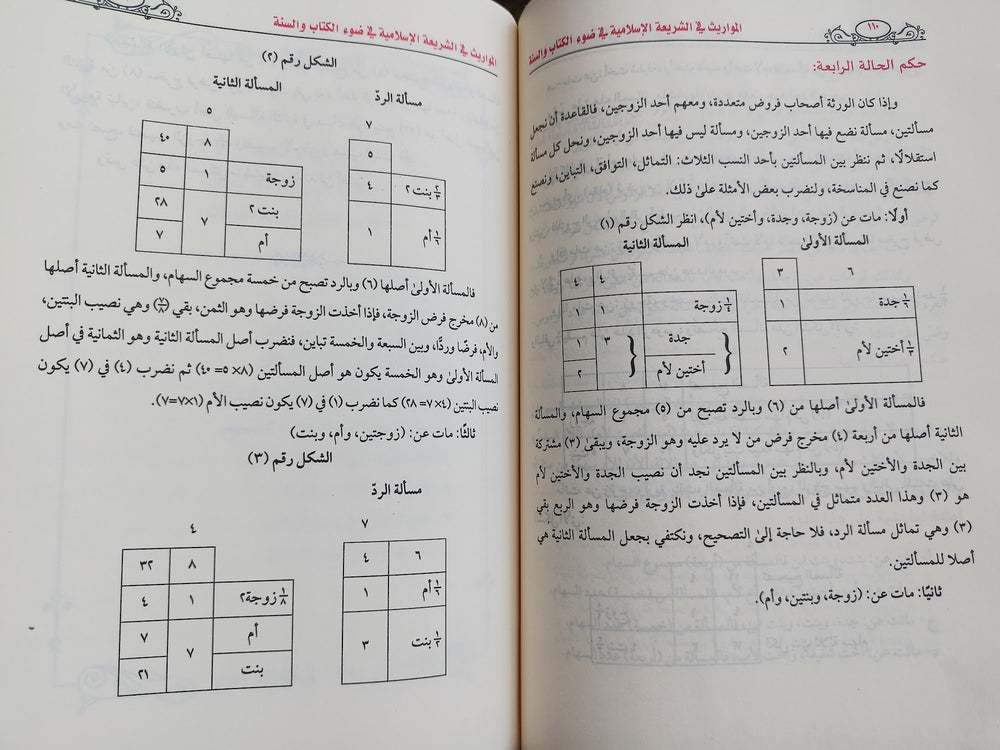 ١١٠
المواريث في الشريعة الإسلامية في ضوء الكتاب والسنة
حكم الحالة الرابعة:
وإذا كان الورثة أصحاب فروض متعددة، ومعهم أحد الزوجين، فالقاعدة أن نجعل
مسألتين، مسألة نضع فيها أحد الزوجين، ومسألة ليس فيها أحد الزوجين، ونحل كل مسألة
استقلالًا، ثم ننظر بين المسألتين بأحد النسب الثلاث: التماثل، التوافق، التباين، ونصنع
كما نصنع في المناسخة، ولنضرب بعض الأمثلة على ذلك.
أولًا: مات عن (زوجة، وجدة، وأختين لأم)، انظر الشكل رقم (١)
المسألة الأولى
المسألة الثانية
٦ ٣
١/٦ جدة ١
١/٣ أختين لأم ٢
٤ ٤
١/٤ زوجة ١ ١
جدة ٣ ١
أختين لأم ٢
فالمسألة الأولى أصلها من (٦) وبالرد تصبح من (٥) مجموع السهام، والمسألة
الثانية أصلها من أربعة (٤) مخرج فرض من لا يرد عليه وهو الزوجة، ويبقى (٣) مشتركة
بين الجدة والأختين لأم، وبالنظر بين المسألتين نجد أن نصيب الجدة والأختين لأم
هو (٣) وهذا العدد متماثل في المسألتين، فإذا أخذت الزوجة فرضها وهو الربع بقي
(٣) وهي تماثل مسألة الرد، فلا حاجة إلى التصحيح، ونكتفي بجعل المسألة الثانية هي
أصلا للمسألتين.
ثانيًا: مات عن: (زوجة، وبنتين، وأم).
المواريث في الشريعة الإسلامية في ضوء الكتاب والسنة
الشكل رقم (٢)
مسألة الردّ
المسألة الثانية
٧
٥
٥
٢/٣ بنت ٢ ٤
١/٦ أم ١
٨ ٤٠
زوجة ١ ٥
بنت ٢ ٧ ٢٨
أم ٧
فالمسألة الأولى أصلها (٦) وبالرد تصبح من خمسة مجموع السهام، والمسألة الثانية أصلها
من (٨) مخرج فرض الزوجة، فإذا أخذت الزوجة فرضها وهو الثمن، بقي (٧/٨) وهي نصيب البنتين،
والأم، فرضًا وردًّا، وبين السبعة والخمسة تباين، فنضرب أصل المسألة الثانية وهو الثمانية في أصل
المسألة الأولى وهو الخمسة يكون هو أصل المسألتين (٨×٥ =٤٠) ثم نضرب (٤) في (٧) يكون
نصيب البنتين (٤×٧ =٢٨) كما نضرب (١) في (٧) يكون نصيب الأم (١×٧=٧).
ثالثًا: مات عن: (زوجتين، وأم، وبنت)
الشكل رقم (٣)
مسألة الردّ
٧
٤
٦ ٤
١/٦ أم ١
١/٢ بنت ٣
٨ ٣٢
١/٨ زوجة٢ ١ ٤
أم ٧ ٧
بنت ٢١